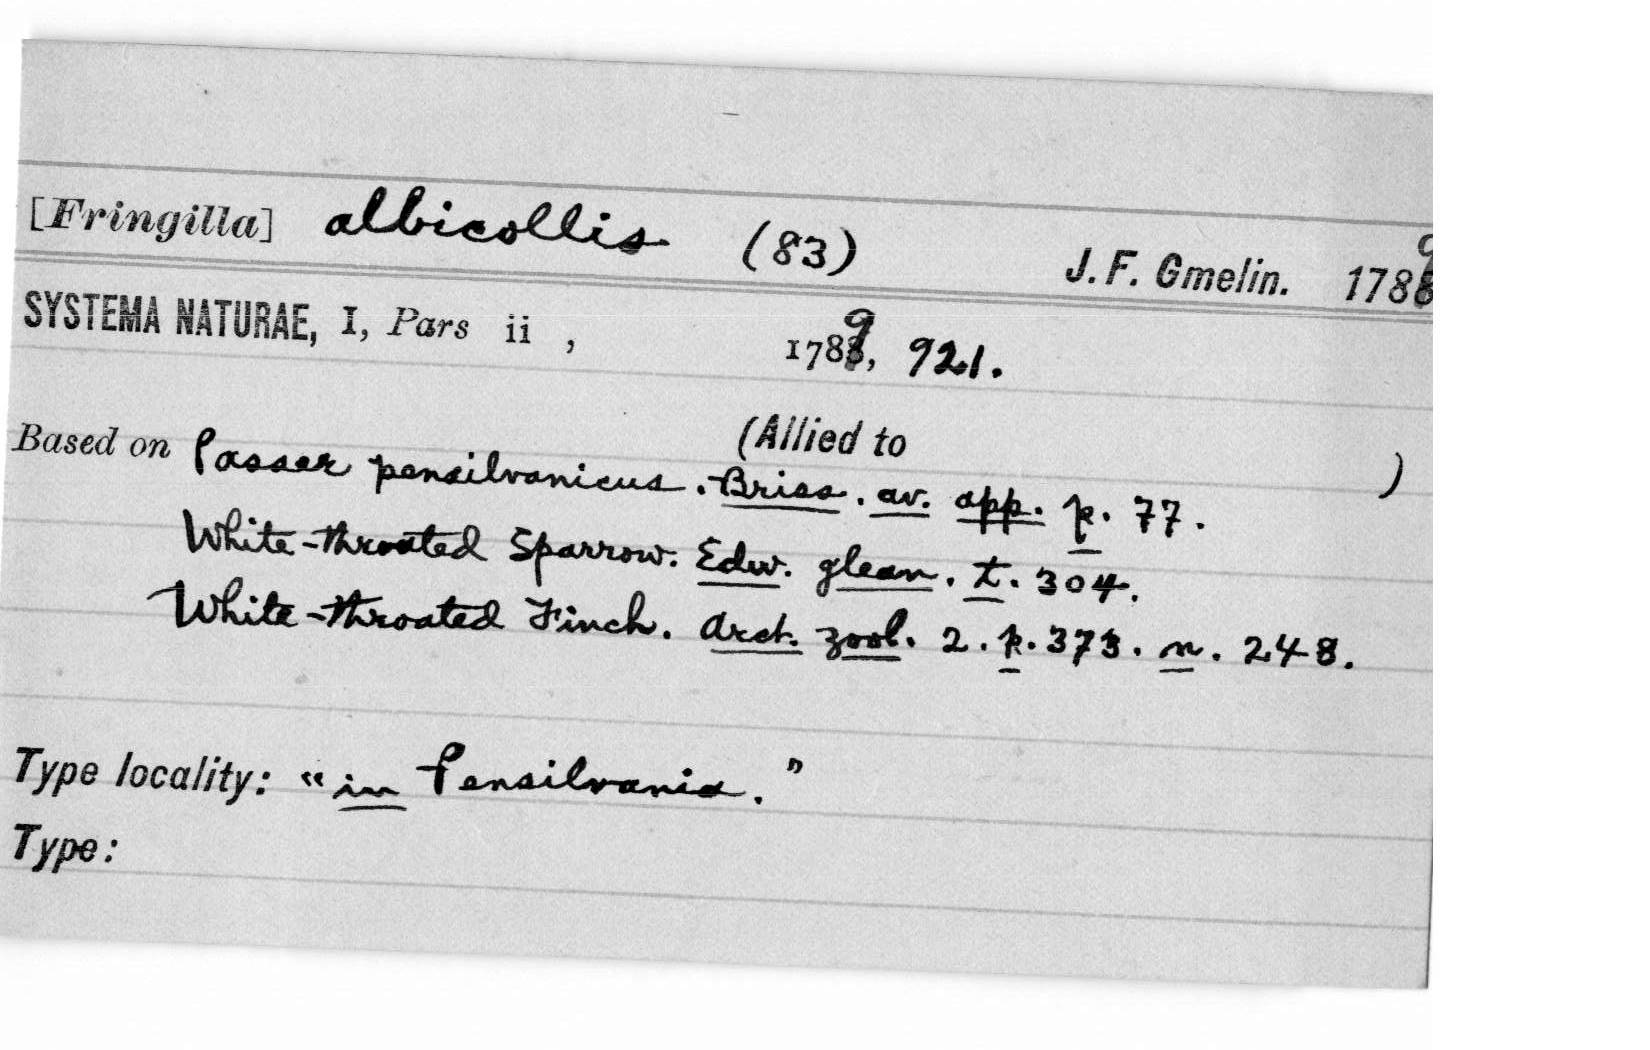 [Fringilla] albicollis (83) J. F. Gmelin. 1789
SYSTEMA NATURAE, I, Pars ii , 1789, 921.
(Allied to )
Based on Passer pensilvanicus. Briss. av. app. p. 77.
White-throated Sparrow. Edw. glean. t. 304.
White-throated Finch. Arct. zool. 2. p. 373. n. 248.
Type locality: "in Pensilvania."
Type: